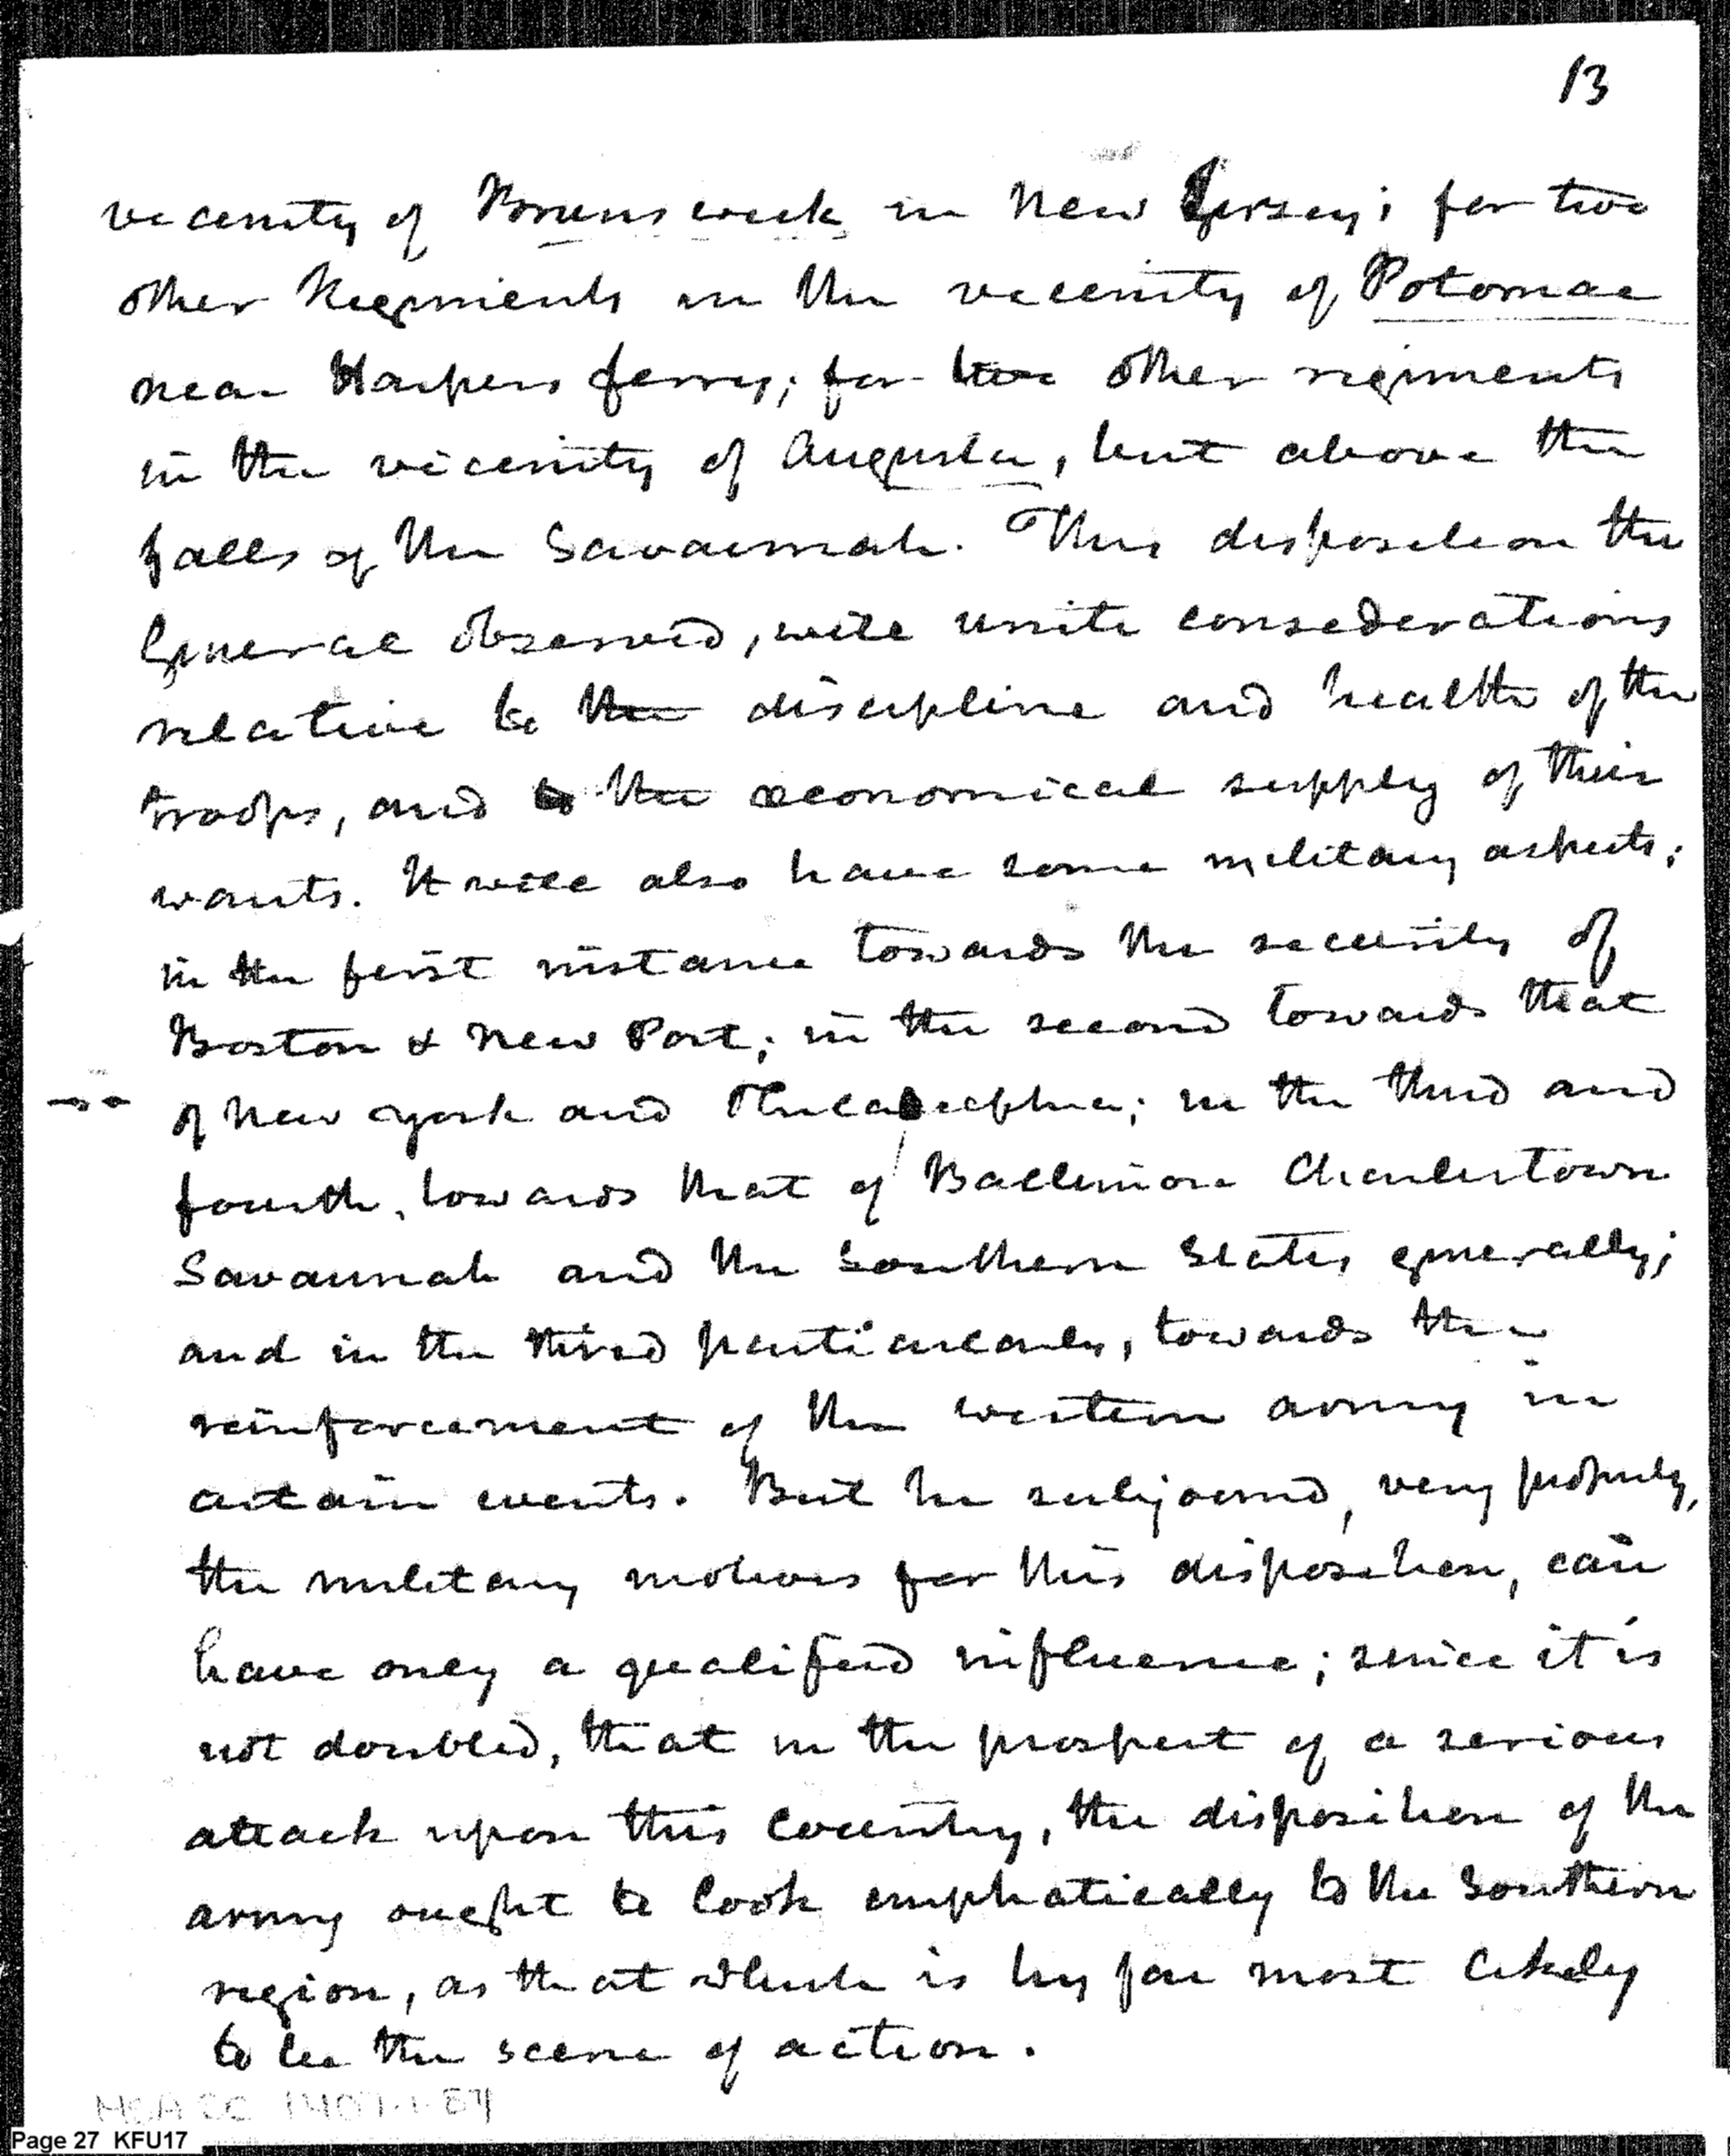 13
vicenity of Brunswick in New Jersey; for two
other Regiments in the vicenity of Potomac
near Harpers ferry; for two other regiments
in the vicenity of Augusta, but above the
falls of the Savannah. This disposition the
General observed, will unite considerations
relative to the discipline and health of the
troops, and to the economical supply of their
wants. It will also have some military aspects;
in the first instance towards the security of
Boston & New Port; in the second towards that
of New York and Philadelphia; in the third and
fourth, towards that of Baltimore Charlestown
Savannah and the Southern States generally;
and in the third particularly, towards the
reinforcement of the western army in
certain events. But he subjoined, very properly,
the military motives for this disposition, can
have only a qualified influence; since it is
not doubted, that in the prospect of a serious
attack upon this Country, the disposition of the
army ought to look emphatically to the Southern
region, as that which is by far most likely
to be the scene of action.
Page 27 KFU17